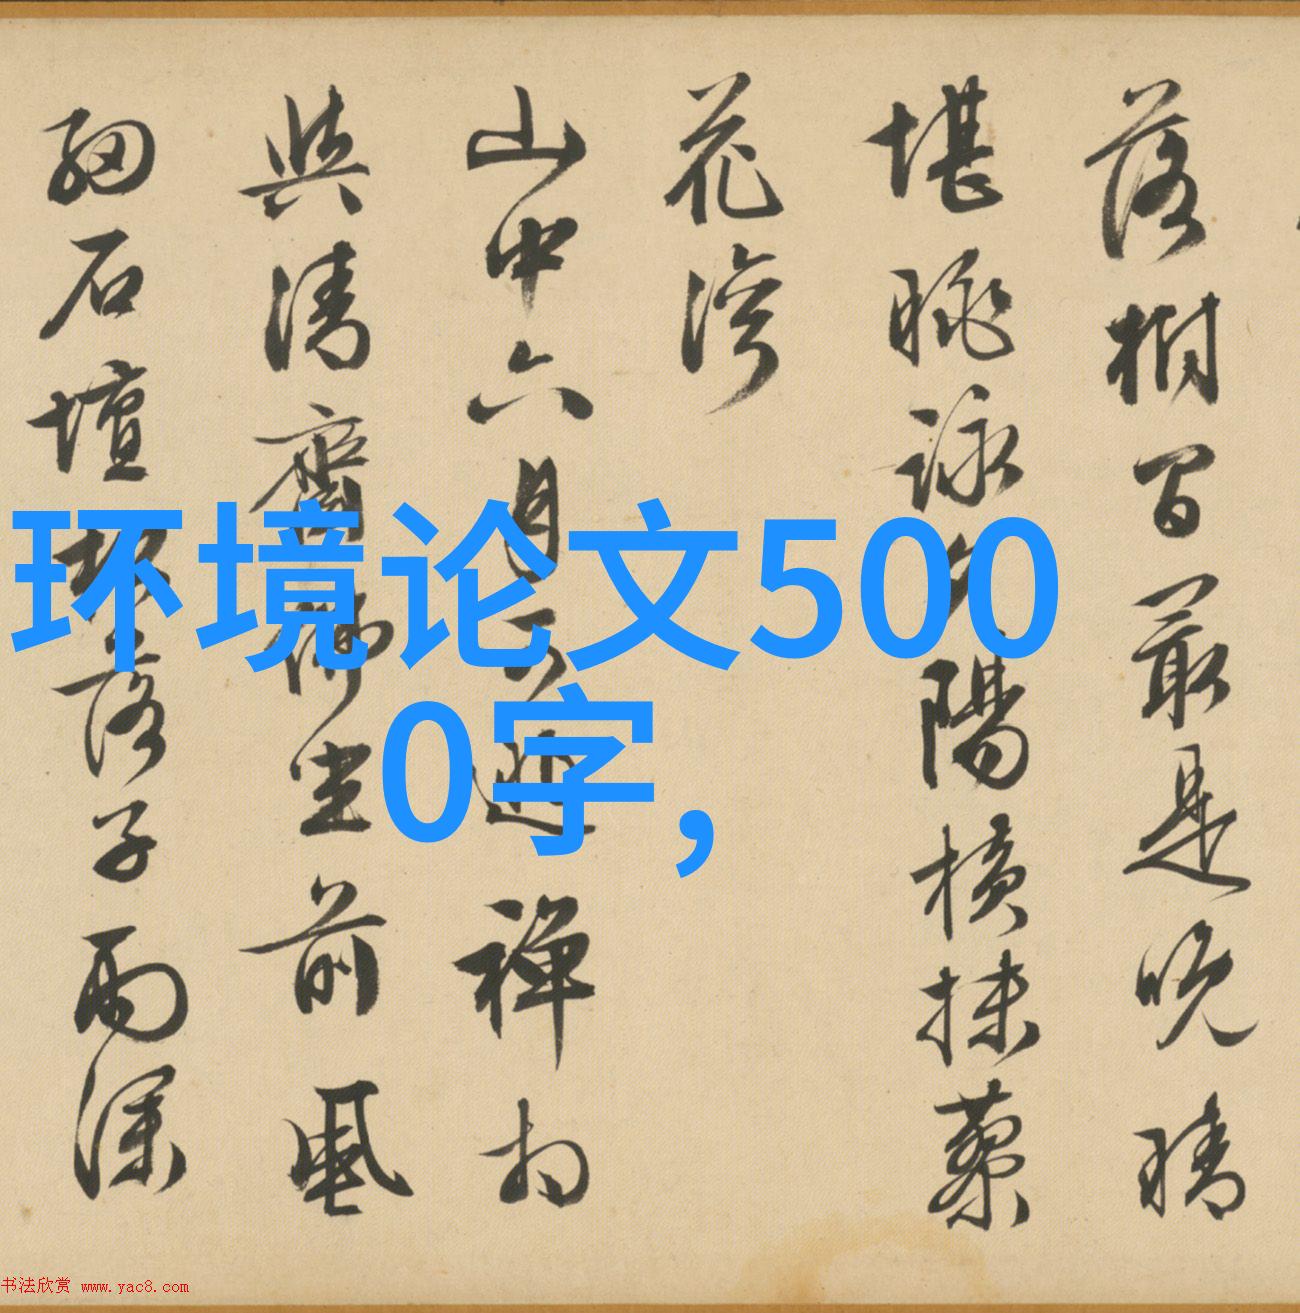 落樹最是晚晴
堪眺詠夕陽橫抹藥
花灣
山中六月禪初
與清齋佛坐前風
細石壇落子雨深
环境论文500
0字,
书法欣赏 www.yac8.com